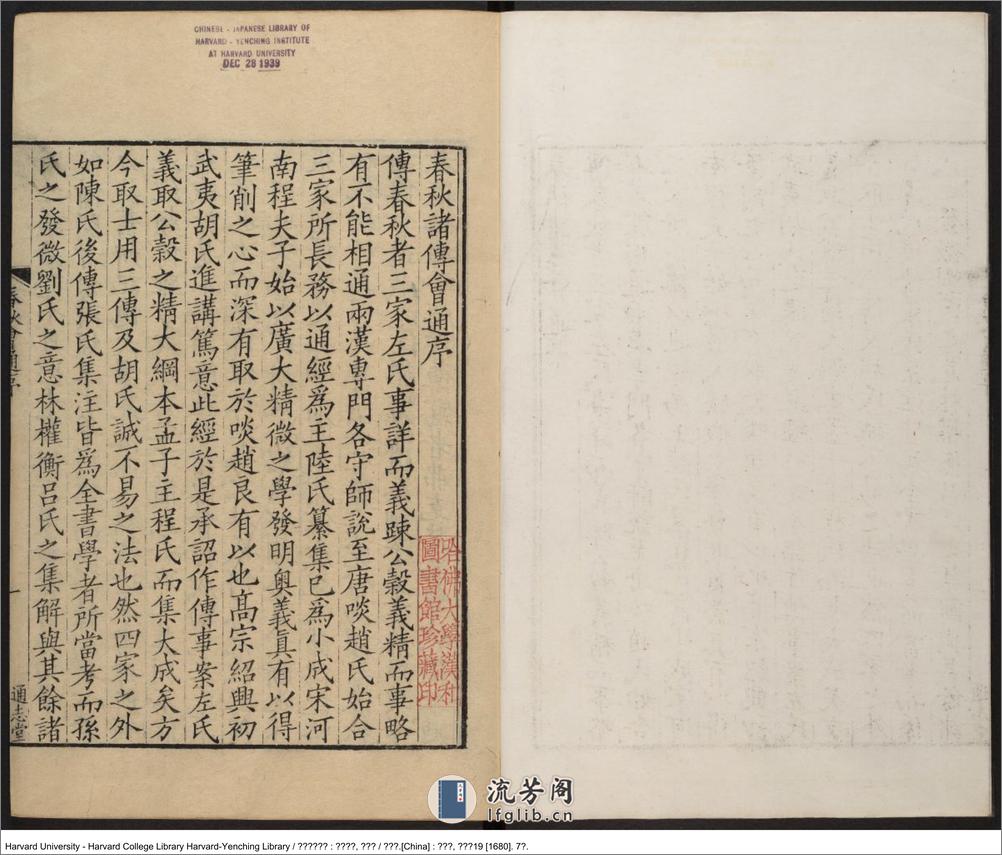 CHINESE - JAPANESE LIBRARY OF
HARVARD - YENCHING INSTITUTE
AT HARVARD UNIVERSITY
DEC 28 1939
春秋諸傳會通序
傳春秋者三家左氏事詳而義踈公榖義精而事略
有不能相通兩漢專門各守師說至唐啖趙氏始合
三家所長務以通經爲主陸氏纂集已爲小成宋河
南程夫子始以廣大精微之學發明奥義真有以得
筆削之心而深有取於啖趙良有以也髙宗紹興初
武夷胡氏進講篤意此經於是承詔作傳事案左氏
義取公榖之精大綱本孟子主程氏而集大成矣方
今取士用三傳及胡氏誠不易之法也然四家之外
如陳氏後傳張氏集注皆爲全書學者所當考而孫
氏之發微劉氏之意林權衡呂氏之集解與其餘諸
春秋會通序
一
通志堂
哈佛大學漢和
圖書館珍藏印
流芳阁
lfglib.cn
Harvard University - Harvard College Library Harvard-Yenching Library / ?????? : ????, ??? / ???.[China] : ???, ???19 [1680]. 7?.